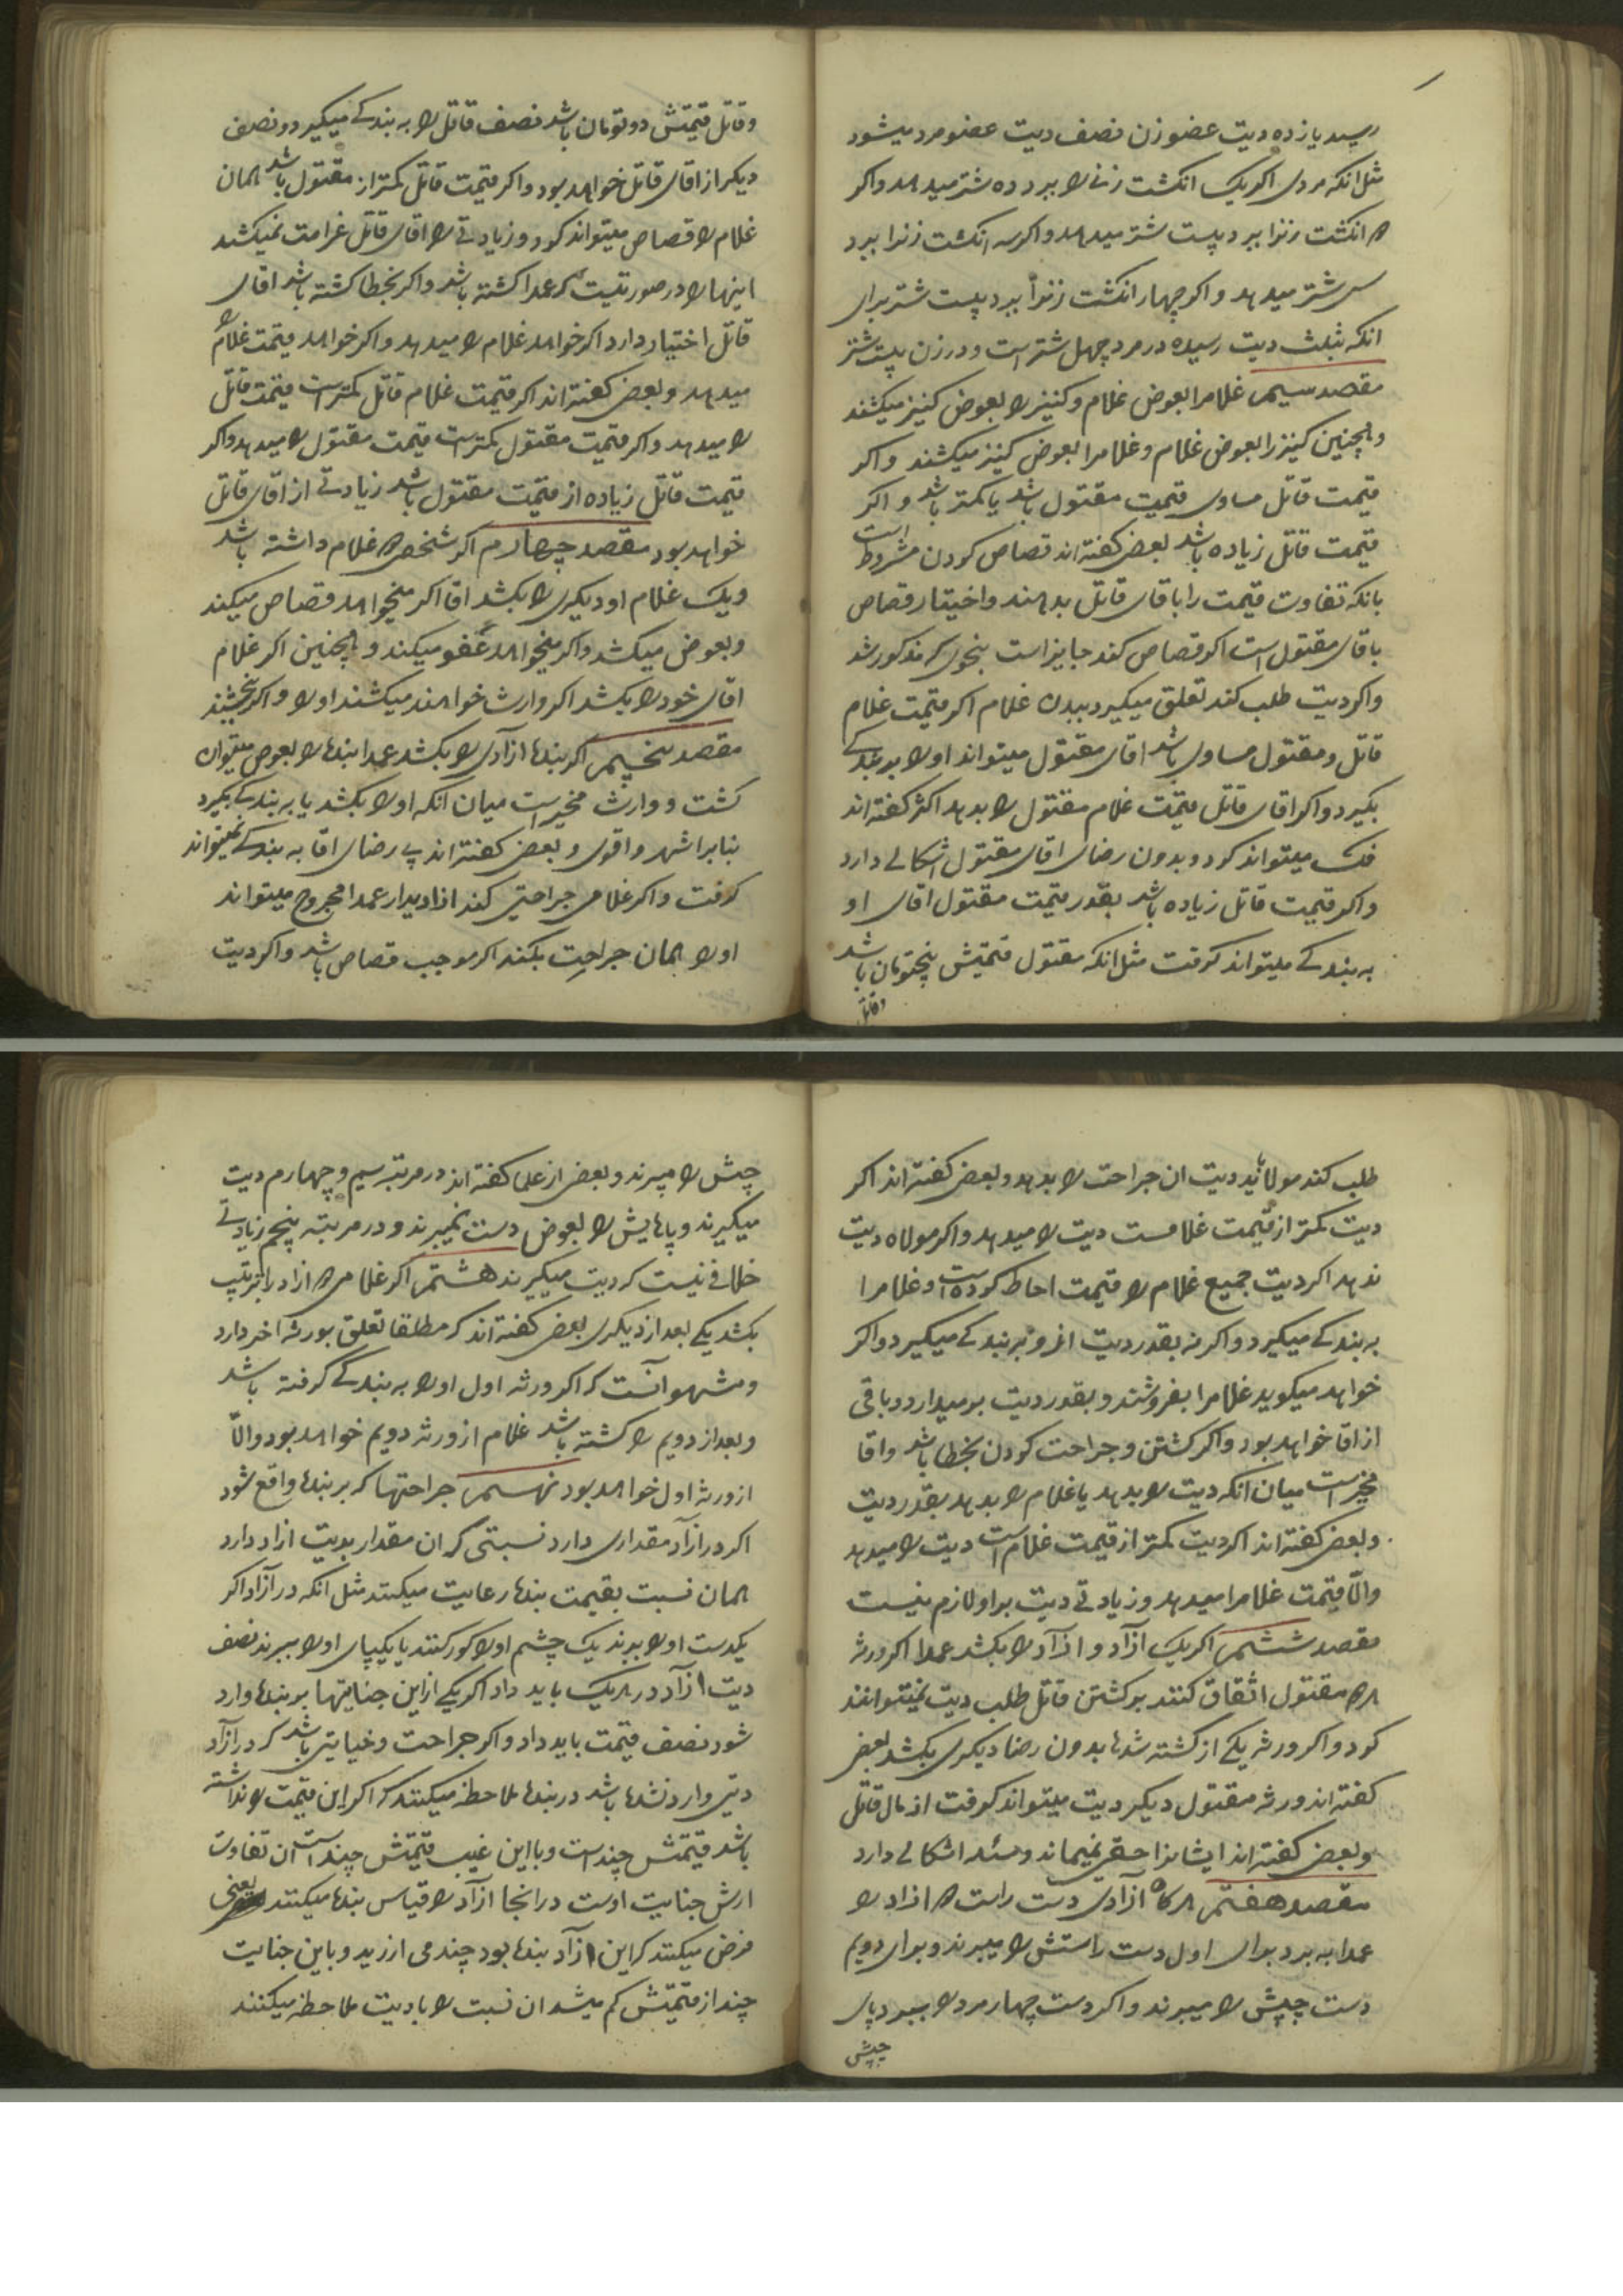 رسید یازده دیت عضو زن نصف دیت عضو مرد میشود
مثل انکه مردی اکر یک انکشت زنی را ببرد ده شتر میدهد و اکر
دو انکشت زنرا ببرد بیست شتر میدهد و اکر سه انکشت زنرا ببرد
سی شتر میدهد و اکر چهار انکشت زنرا ببرد بیست شتر برای
انکه بثلث دیت رسیده در مرد چهل شتر است و در زن بیست شتر
مقصد سیم غلامرا بعوض غلام و کنیز را بعوض کنیز میکشند
و همچنین کنیز را بعوض غلام و غلامرا بعوض کنیز میکشند و اکر
قیمت قاتل مساوی قیمت مقتول باشد یا کمتر باشد و اکر
قیمت قاتل زیاده باشد بعضی کفته اند قصاص کردن مشروط است
بانکه تفاوت قیمت را باقای قاتل بدهند و اختیار قصاص
باقای مقتول است اکر قصاص کند جایز است بنحوی که مذکور شد
و اکر دیت طلب کند تعلق میکیرد ببدن غلام اکر قیمت غلام
قاتل و مقتول مساوی باشد اقای مقتول میتواند او را ببندکی
بکیرد و اکر اقای قاتل قیمت غلام مقتول را بدهد اکثر کفته اند
فک میتواند کرد و بدون رضای اقای مقتول اشکالی دارد
و اکر قیمت قاتل زیاده باشد بقدر قیمت مقتول اقای او
به بندکی میتواند کرفت مثل انکه مقتول قیمتش پنجتومان باشد
و قاتل
و قاتل قیمتش دو تومان باشد نصف قاتل را به بندکی میکیرد و نصف
دیکر از اقای قاتل خواهد بود و اکر قیمت قاتل کمتر از مقتول باشد همان
غلام را قصاص میتواند کرد و زیادتی را اقای قاتل غرامت نمیکشد
اینها را در صورتیست که عمدا کشته باشد و اکر بخطا کشته باشد اقای
قاتل اختیار دارد اکر خواهد غلام را میدهد و اکر خواهد قیمت غلام را
میدهد و بعضی کفته اند اکر قیمت غلام قاتل کمتر است قیمت قاتل
را میدهد و اکر قیمت مقتول کمتر است قیمت مقتول را میدهد و اکر
قیمت قاتل زیاده از قیمت مقتول باشد زیادتی از اقای قاتل
خواهد بود مقصد چهارم اکر شخصی دو غلام داشته باشد
و یک غلام او دیکری را بکشد اقا اکر میخواهد قصاص میکند
و بعوض میکشد و اکر میخواهد عفو میکند و همچنین اکر غلام
اقای خود را بکشد اکر وارث خواهند میکشند او را و اکر نه میبخشند
مقصد پنجم اکر بندۀ ازادی را بکشد عمدا بنده را بعوض میتوان
کشت و وارث مخیر است میان انکه او را بکشد یا به بندکی بکیرد
بنابر اشهر و اقوی و بعضی کفته اند بی رضای اقا به بندکی نمیتواند
کرفت و اکر غلامی جراحتی کند ازادیرا عمدا مجروح میتواند
او را همان جراحت بکند اکر موجب قصاص باشد و اکر دیت
طلب کند مولا باید دیت ان جراحت را بدهد و بعضی کفته اند اکر
دیت کمتر از قیمت غلامست دیت را میدهد و اکر مولاه دیت
ندهد اکر دیت جمیع غلام را قیمت احاطه کرده است او غلامرا
به بندکی میکیرد و اکر نه بقدر دیت از و به بندکی میکیرد و اکر
خواهد میکوید غلامرا بفروشند و بقدر دیت برمیدارد و باقی
از اقا خواهد بود و اکر کشتن و جراحت کردن بخطا باشد و اقا
مخیر است میان انکه دیت را بدهد یا غلام را بدهد بقدر دیت
و بعضی کفته اند اکر دیت کمتر از قیمت غلام است دیت را میدهد
والّا قیمت غلامرا میدهد و زیادتی دیت بر او لازم نیست
مقصد ششم اکر یک ازاد دو ازاد را بکشد عمدا اکر ورثه
هر دو مقتول اتفاق کنند بر کشتن قاتل طلب دیت نمیتوانند
کرد و اکر ورثه یکی از کشته شدها بدون رضا دیکری بکشد بعضی
کفته اند ورثه مقتول دیکر دیت میتواند کرفت از مال قاتل
و بعضی کفته اند ایشانرا حقی نمیماند و مسئله اشکالی دارد
مقصد هفتم هرکاه ازادی دست راست دو ازاد را
عمدا به برد برای اول دست راستش را میبرند و برای دویم
دست چپش را میبرند و اکر دست چهار مرد را ببرد پای
چپش
چپش را میبرند و بعضی از علما کفته اند در مرتبه سیم و چهارم دیت
میکیرند و پاهایش را بعوض دست نمیبرند و در مرتبه پنجم زیادتی
خلافی نیست که دیت میکیرند هشتم اکر غلامی دو ازاد را بترتیب
بکشد یکی بعد از دیکری بعضی کفته اند که مطلقا تعلق بورثه اخر دارد
و مشهور آنست که اکر ورثه اول او را به بندکی کرفته باشد
و بعد از دویم را کشته باشد غلام از ورثه دویم خواهد بود والّا
از ورثه اول خواهد بود نهم جراحتها که بر بندها واقع شود
اکر در ازاد مقداری دارد نسبتی که ان مقدار بدیت ازاد دارد
همان نسبت بقیمت بندها رعایت میکنند مثل انکه در آزاد اکر
یکدست او را ببرند یک چشم او را کور کنند یا یکپای او را ببرند نصف
دیت ازاد در هر یک باید داد اکر یکی از این جنایتها بر بندها وارد
شود نصف قیمت باید داد و اکر جراحت و خیایتی باشد که در ازاد
دیتی وارد نشده باشد در بندها ملاحظه میکنند که اکر این قیمت را نداشته
باشد قیمتش چند است و با این عیب قیمتش چند است ان تفاوت
ارش جنایت اوست در انجا ازاد را قیاس بندها میکنند یعنی
فرض میکنند که این ازاد بندها بود چند می ارزید و باین جنایت
چند از قیمتش کم میشد ان نسبت را با دیت ملاحظه میکنند